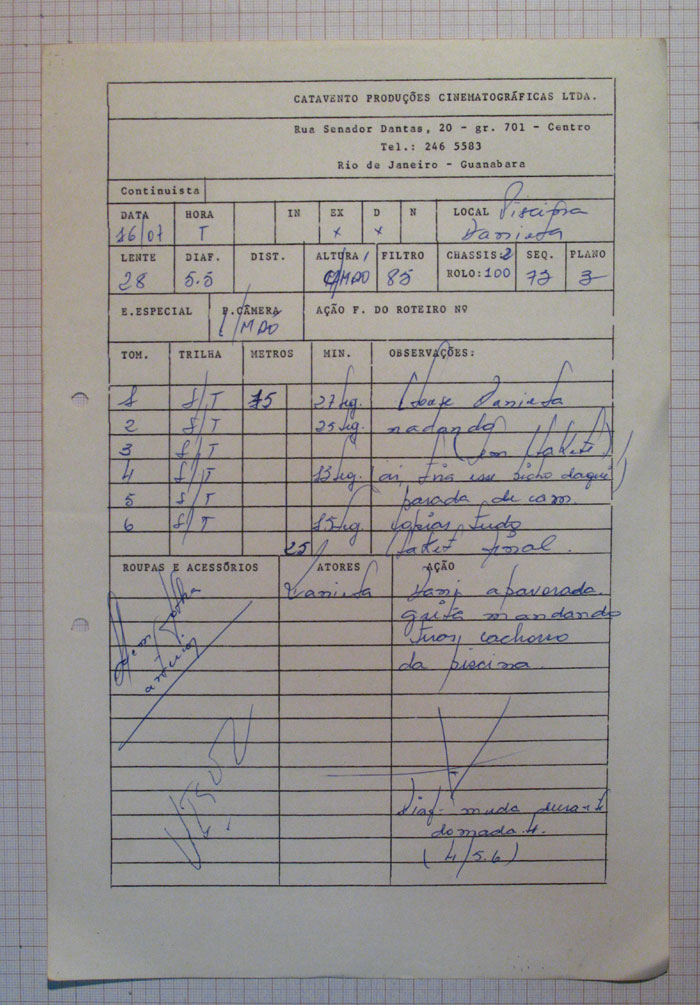 CATAVENTO PRODUÇÕES CINEMATOGRÁFICAS LTDA.
Rua Senador Dantas, 20 - gr. 701 - Centro
Tel.: 246 5583
Rio de Janeiro - Guanabara
Continuista
DATA HORA IN EX D N LOCAL Piscina
16/07 T x x Daniela
LENTE DIAF. DIST. ALTURA FILTRO CHASSIS: 2 SEQ. PLANO
28 5.5 C/MÃO 85 ROLO: 100 72 3
E.ESPECIAL P.CÂMERA AÇÃO F. DO ROTEIRO Nº
C/MÃO
TOM. TRILHA METROS MIN. OBSERVAÇÕES:
1 S/T 15 27 seg. Close Daniela
2 S/T 25 seg. nadando
3 S/T
4 S/T 13 seg. (ai, tira esse bicho daqui)
5 S/T parada de
6 S/T 15 seg. copiar tudo
25 final.
ROUPAS E ACESSÓRIOS ATORES AÇÃO
Daniela Dani apavorada.
grita mandando
tirar cachorro
da piscina
Diaf. muda
4.
(4/5.6)